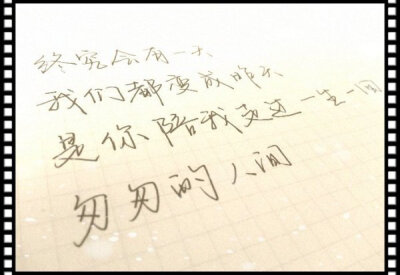 终究会有一天
我们都变成昨天
是你陪我走过一生一回
匆匆的人间